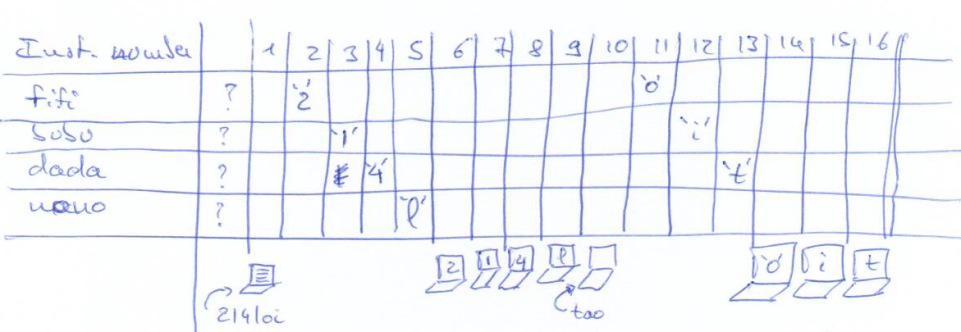 Inst. number 1 2 3 4 5 6 7 8 9 10 11 12 13 14 15 16
fifi ? '2' 'o'
bobo ? '1' 'i'
dada ? '4' 't'
nono ? 'l'
2 1 4 l 'o' i t
214loi tao